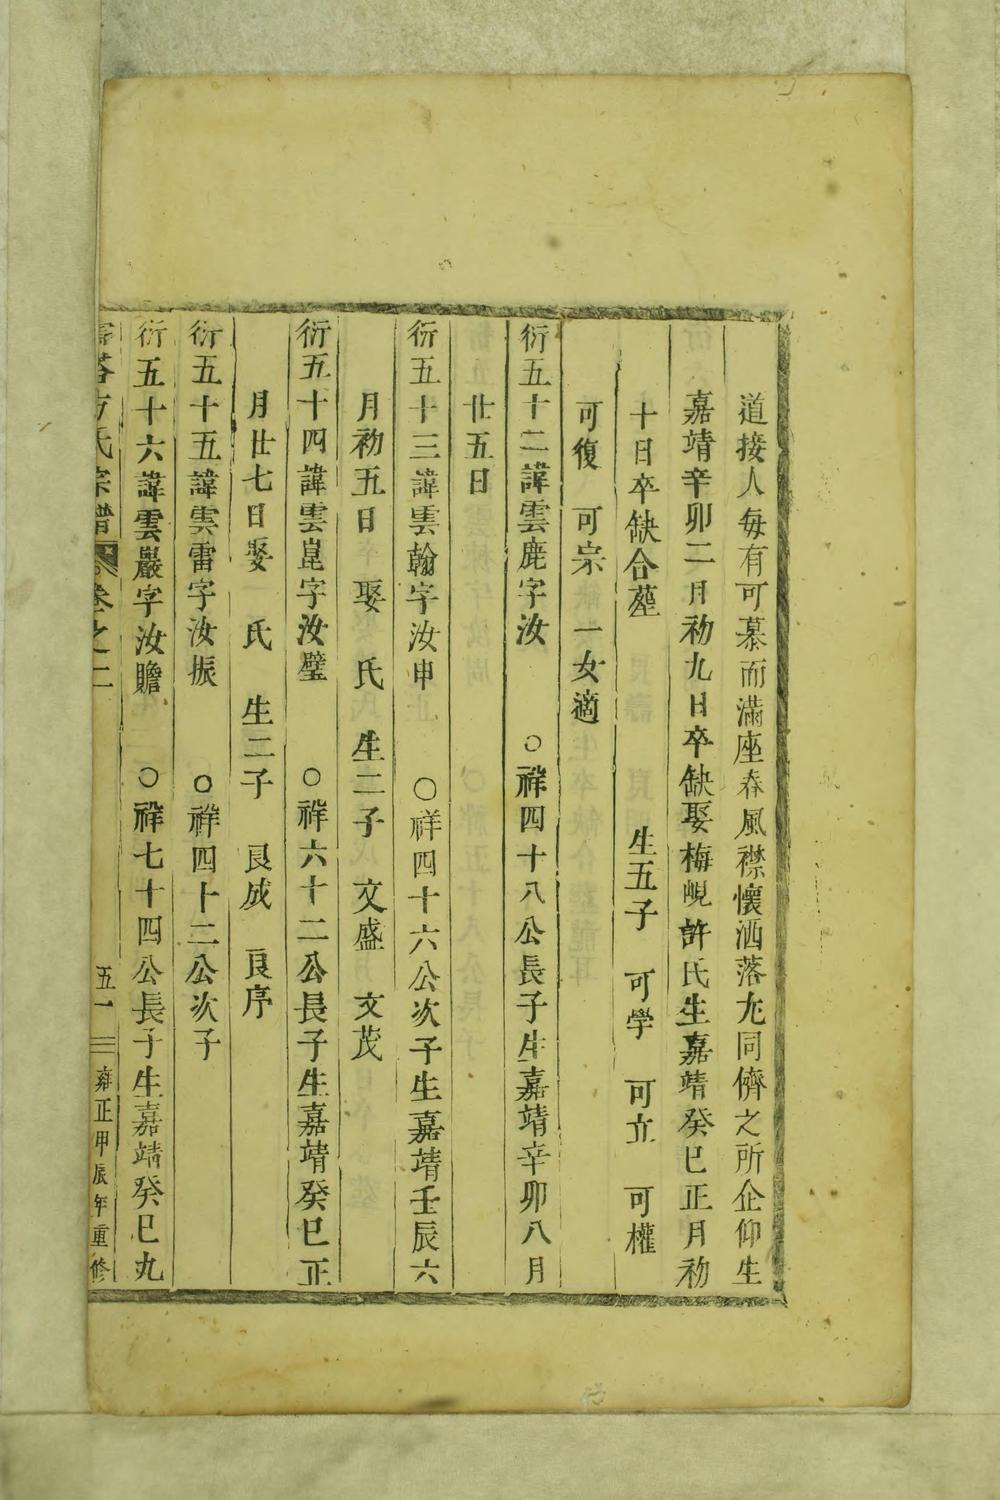 道接人每有可慕而滿座春風襟懷洒落尤同儕之所企仰生
嘉靖辛卯二月初九日卒缺娶梅峴許氏生嘉靖癸巳正月初
十日卒缺合塟 生五子 可學 可立 可權
可復 可宗 一女適
衍五十二諱雲鹿字汝 ○祥四十八公長子生嘉靖辛卯八月
廿五日
衍五十三諱雲翰字汝申 ○祥四十六公次子生嘉靖壬辰六
月初五日 娶 氏 生二子 文盛 文茂
衍五十四諱雲崑字汝璧 ○祥六十二公長子生嘉靖癸巳正
月廿七日娶 氏 生二子 良成 良序
衍五十五諱雲雷字汝振 ○祥四十二公次子
衍五十六諱雲巖字汝贍 ○祥七十四公長子生嘉靖癸巳九
方氏宗譜 卷之二 五一 雍正甲辰年重修